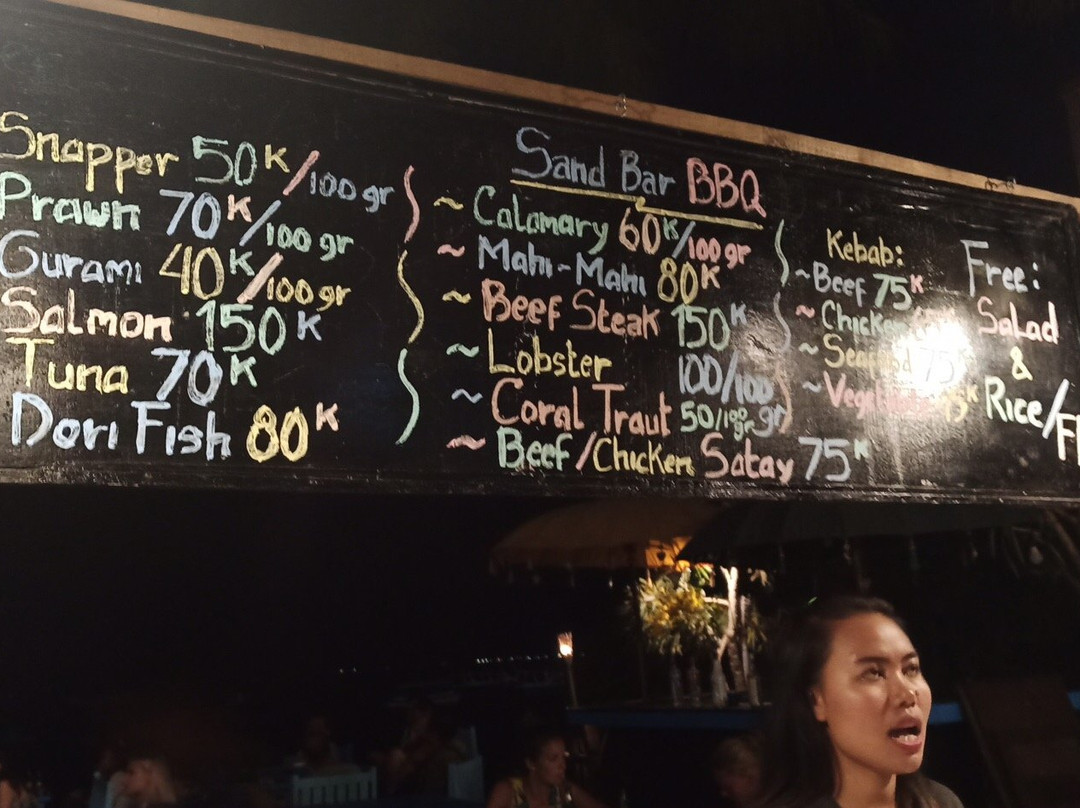 Snapper 50K/100 gr
Prawn 70K/100 gr
Gurami 40K/100gr
Salmon 150K
Tuna 70K
Dori Fish 80K
Sand Bar BBQ
~ Calamary 60K/100gr
~ Mahi-Mahi 80K
~ Beef Steak 150K
~ Lobster 100/100gr
~ Coral Traut 50/100gr
~ Beef/Chicken Satay 75K
Kebab:
~Beef 75K
~ Chicken
~ Seafood 75K
~ Veget
Free:
Salad
&
Rice/